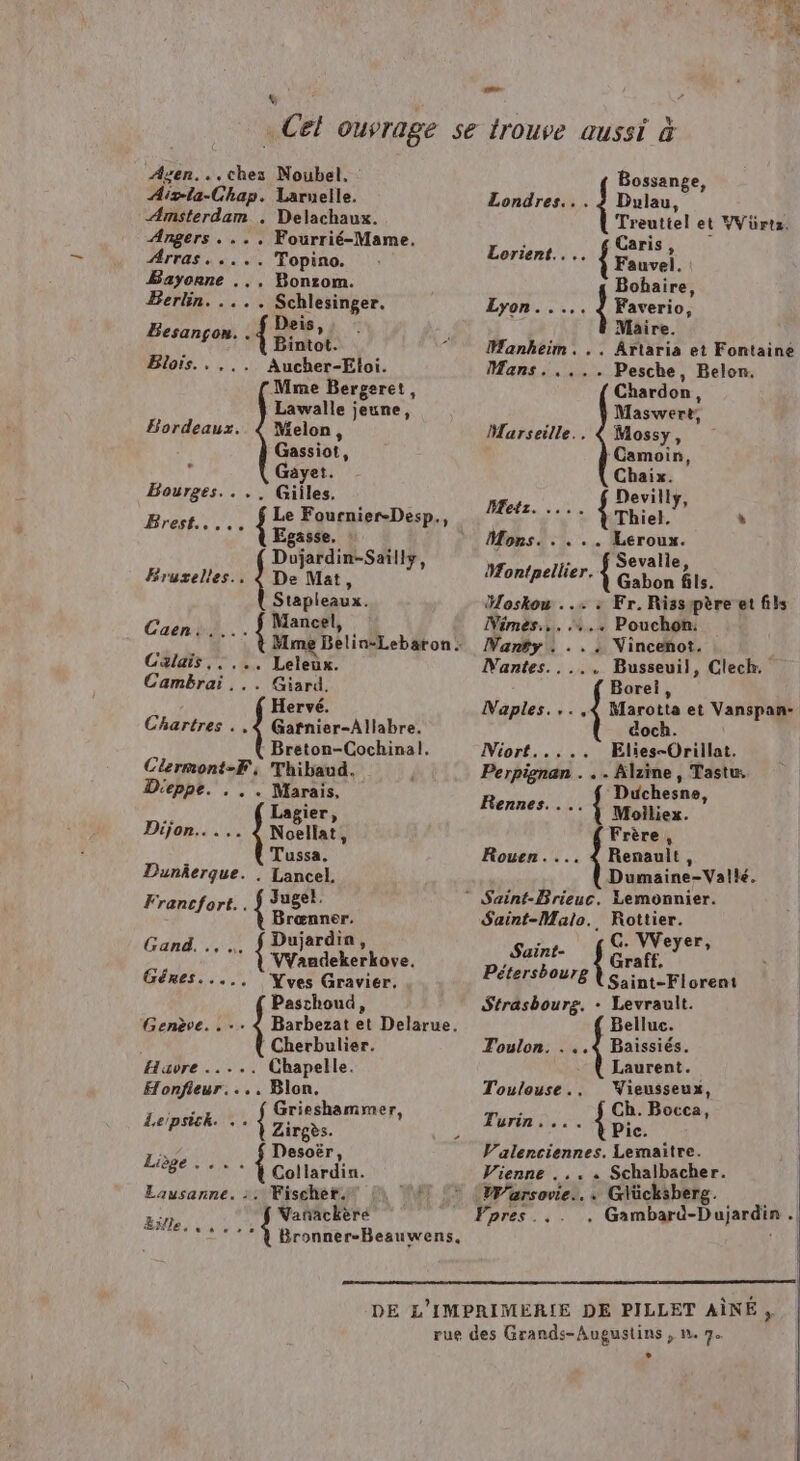 Cet ouvrage se trouve aussi à
Agen... chez Noubel.
Aix-la-Chap. Laruelle.
Amsterdam . Delachaux.
Angers .... Fourrié-Mame.
Arras..... Topino.
Bayonne ... Bonzom.
Berlin. .... Schlesinger.
Besançon. . { Deis,
Bintot.
Blois..... Aucher-Eloi.
Bordeaux. { Mme Bergeret,
Lawalle jeune,
Melon,
Gassiot,
Gayet.
Bourges.... Gilles.
Brest..... { Le Fournier-Desp.,
Egasse.
Bruxelles.. { Dujardin-Sailly,
De Mat,
Stapleaux.
Caen..... { Mancel,
Mme Belin-Lebaron.
Calais..... Leleux.
Cambrai... Giard.
Chartres .. { Hervé.
Garnier-Allabre.
Breton-Cochinal.
Clermont-F. Thibaud.
Dieppe. ... Marais.
Dijon..... { Lagier,
Noellat,
Tussa.
Dunkerque. . Lancel.
Francfort.. { Jugel.
Brœnner.
Gand. .... { Dujardin,
Wandekerkove.
Gênes..... Yves Gravier.
Genève. ... { Paschoud,
Barbezat et Delarue.
Cherbulier.
Havre ..... Chapelle.
Honfleur.... Blon.
Leipsick. .. { Grieshammer,
Zirgès.
Liège .... { Desoër,
Collardin.
Lausanne. .. Fischer.
Lille. .... { Vanackère
Bronner-Beauwens.
Londres... { Bossange,
Dulau,
Treuttel et Würtz.
Lorient.... { Caris,
Fauvel.
Lyon..... { Bohaire,
Faverio,
Maire.
Manheim... Artaria et Fontaine
Mans..... Pesche, Belon.
Marseille.. { Chardon,
Maswert,
Mossy,
Camoin,
Chaix.
Metz. .... { Devilly,
Thiel.
Mons..... Leroux.
Montpellier. { Sevalle,
Gabon fils.
Moskou .... Fr. Riss père et fils
Nimes...... Pouchon.
Nancy .... Vincenot.
Nantes..... Busseuil, Clech.
Naples. ... { Borel,
Marotta et Vanspan-
doch.
Niort..... Elies-Orillat.
Perpignan ... Alzine, Tastu.
Rennes. ... { Duchesne,
Molliex.
Rouen.... { Frère,
Renault,
Dumaine-Vallé.
Saint-Brieuc. Lemonnier.
Saint-Malo. Rottier.
Saint-Pétersbourg { C. Weyer,
Graff.
Saint-Florent
Strasbourg. . Levrault.
Toulon. ... { Belluc.
Baissiés.
Laurent.
Toulouse.. Vieusseux,
Turin.... { Ch. Bocca,
Pic.
Valenciennes. Lemaitre.
Vienne .... Schalbacher.
Warsovie... Glücksberg.
Ypres... . Gambard-Dujardin.
DE L'IMPRIMERIE DE PILLET AÎNÉ,
rue des Grands-Augustins, n. 7.